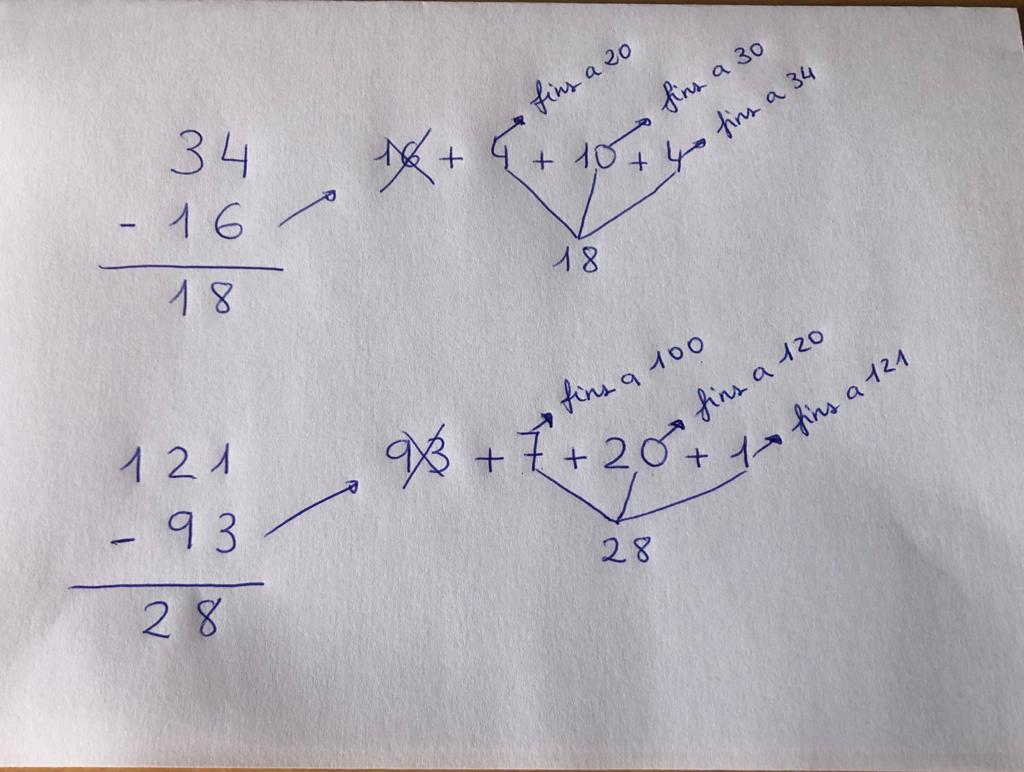 34
- 16
18
16 + 4 + 10 + 4
fins a 20
fins a 30
fins a 34
18
121
- 93
28
93 + 7 + 20 + 1
fins a 100
fins a 120
fins a 121
28